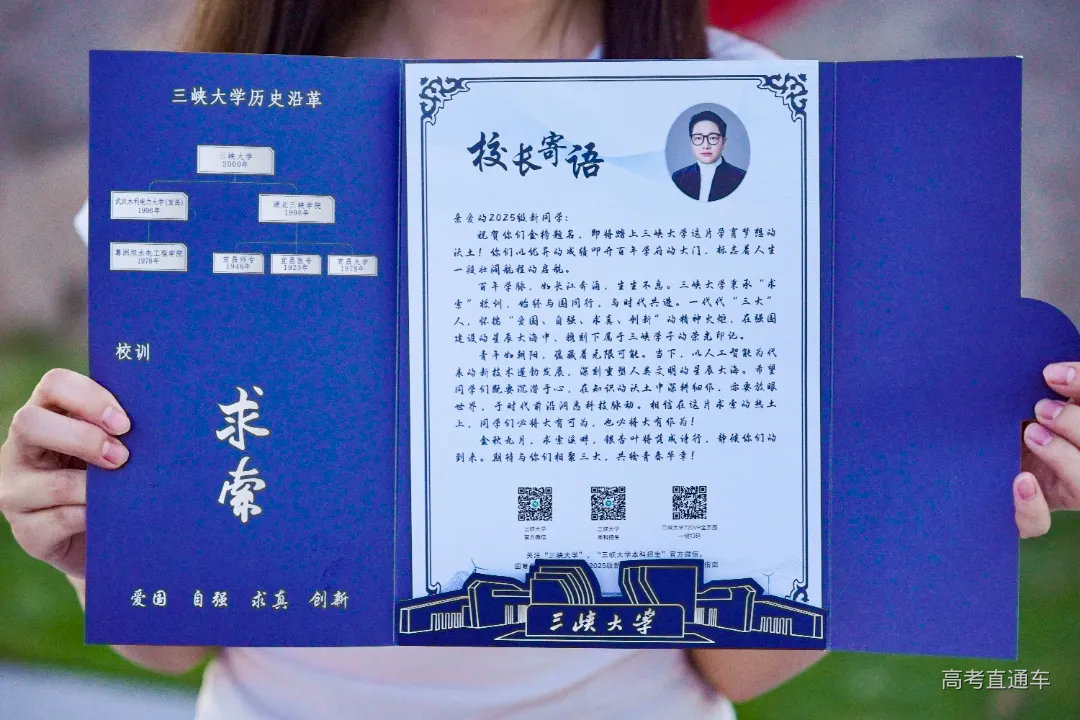 三峡大学历史沿革
三峡大学
2000年
武汉水利电力大学(宜昌)
1996年
湖北三峡学院
1996年
葛洲坝水电工程学院
1978年
宜昌师专
1946年
宜昌医专
1923年
宜昌大学
1978年
校训
求
索
爱国 自强 求真 创新
校长寄语
亲爱的2025级新同学:
祝贺你们金榜题名,即将踏上三峡大学这片孕育梦想的
沃土!你们以优异的成绩叩开百年学府的大门,标志着人生
一段壮阔航程的启航。
百年学脉,如长江奔涌,生生不息。三峡大学秉承“求
索”校训,始终与国同行,与时代共进。一代代“三大”
人,怀揣“爱国、自强、求真、创新”的精神火炬,在强国
建设的星辰大海中,镌刻下属于三峡学子的荣光印记。
青年如朝阳,蕴藏着无限可能。当下,以人工智能为代
表的新技术蓬勃发展,深刻重塑人类文明的星辰大海。希望
同学们既要沉潜于心,在知识的沃土中深耕细作,亦要放眼
世界,于时代前沿洞悉科技脉动。相信在这片求索的热土
上,同学们必将大有可为,也必将大有作为!
金秋九月,求索溪畔,银杏叶将翼成诗行,静候你们的
到来。期待与你们相聚三大,共绘青春华章!
三峡大学
官方微信
三峡大学
本科招生
三峡大学720VR全景图
一键扫码
关注“三峡大学”、“三峡大学本科招生”官方微信,
回复 2025级新 指南
三峡大学
高考直通车